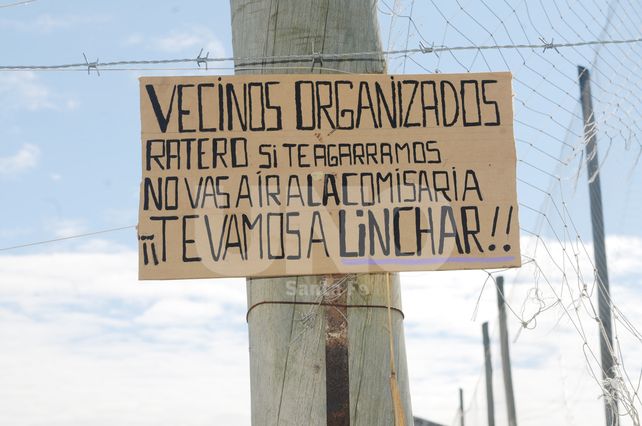 VECINOS ORGANIZADOS
RATERO SI TE AGARRAMOS
NO VAS A ÍR A LA COMISARIA
¡¡TE VAMOS A LINCHAR!!
UNO
Santa Fe